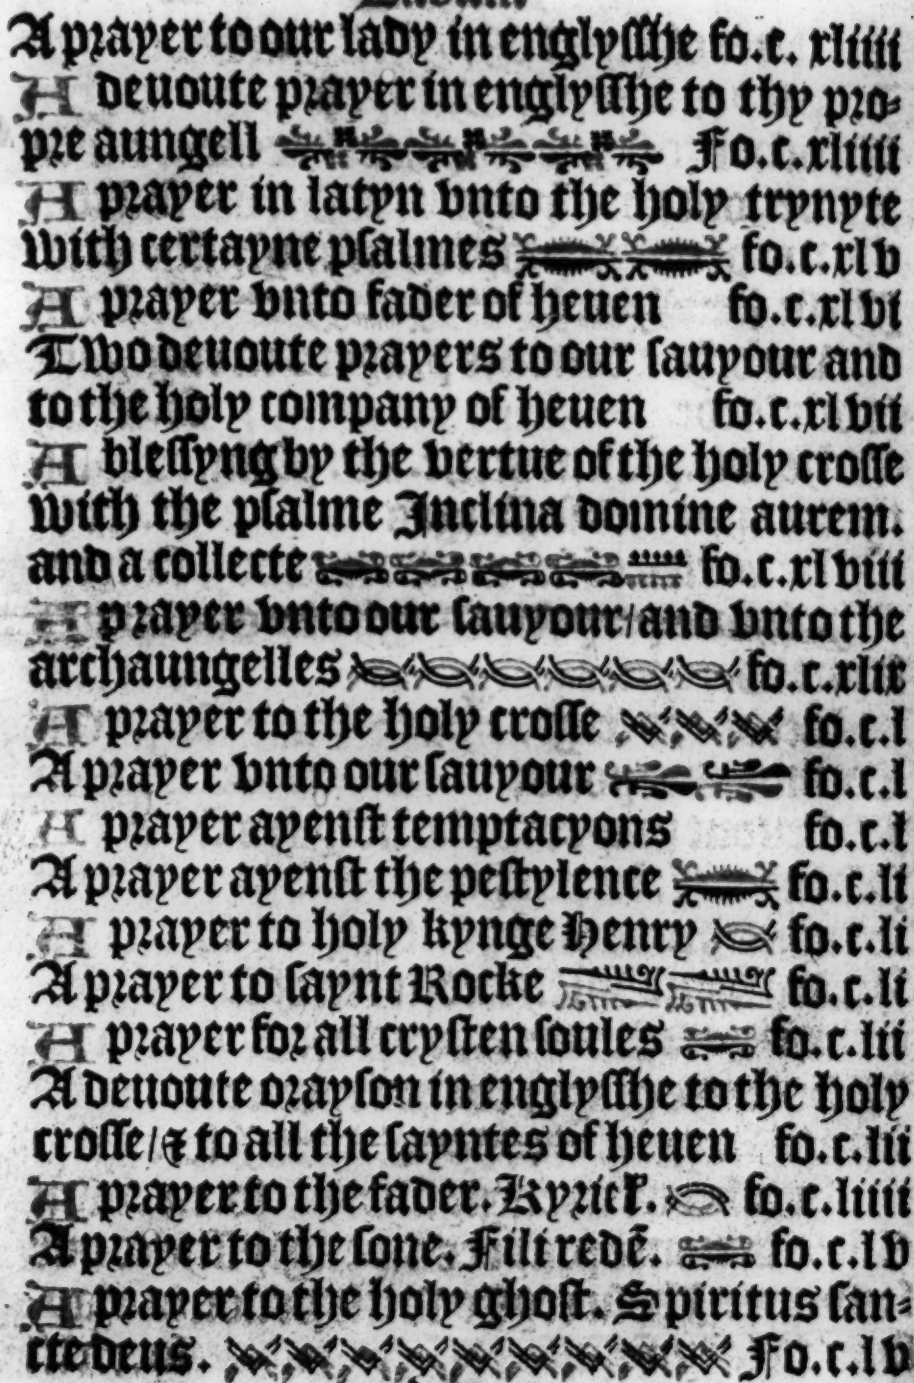 A prayer to our lady in englysshe fo.c. xliiii
A deuoute prayer in englysshe to thy pro-
pre aungell Fo.c.xliiii
A prayer in latyn vnto the holy trynyte
with certayne psalmes fo.c.xlv
A prayer vnto fader of heuen fo.c.xlvi
Two deuoute prayers to our sauyour and
to the holy company of heuen fo.c.xlvii
A blessyng by the vertue of the holy crosse
with the psalme Inclina domine aurem.
and a collecte fo.c.xlviii
A prayer vnto our sauyour/and vnto the
archaungelles fo.c.xlix
A prayer to the holy crosse fo.c.l
A prayer vnto our sauyour fo.c.l
A prayer ayenst temptacyons fo.c.l
A prayer ayenst the pestylence fo.c.li
A prayer to holy kynge Henry fo.c.li
A prayer to saynt Rocke fo.c.li
A prayer for all crysten soules fo.c.lii
A deuoute orayson in englysshe to the holy
crosse/& to all the sayntes of heuen fo.c.lii
A prayer to the fader. Kyrick. fo.c.liiii
A prayer to the sone. Fili redē. fo.c.lv
A prayer to the holy ghost. Spiritus san-
cte deus. Fo.c.lv